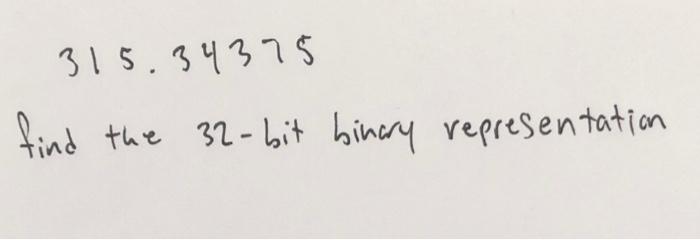 315.34375
find the 32-bit binary representation